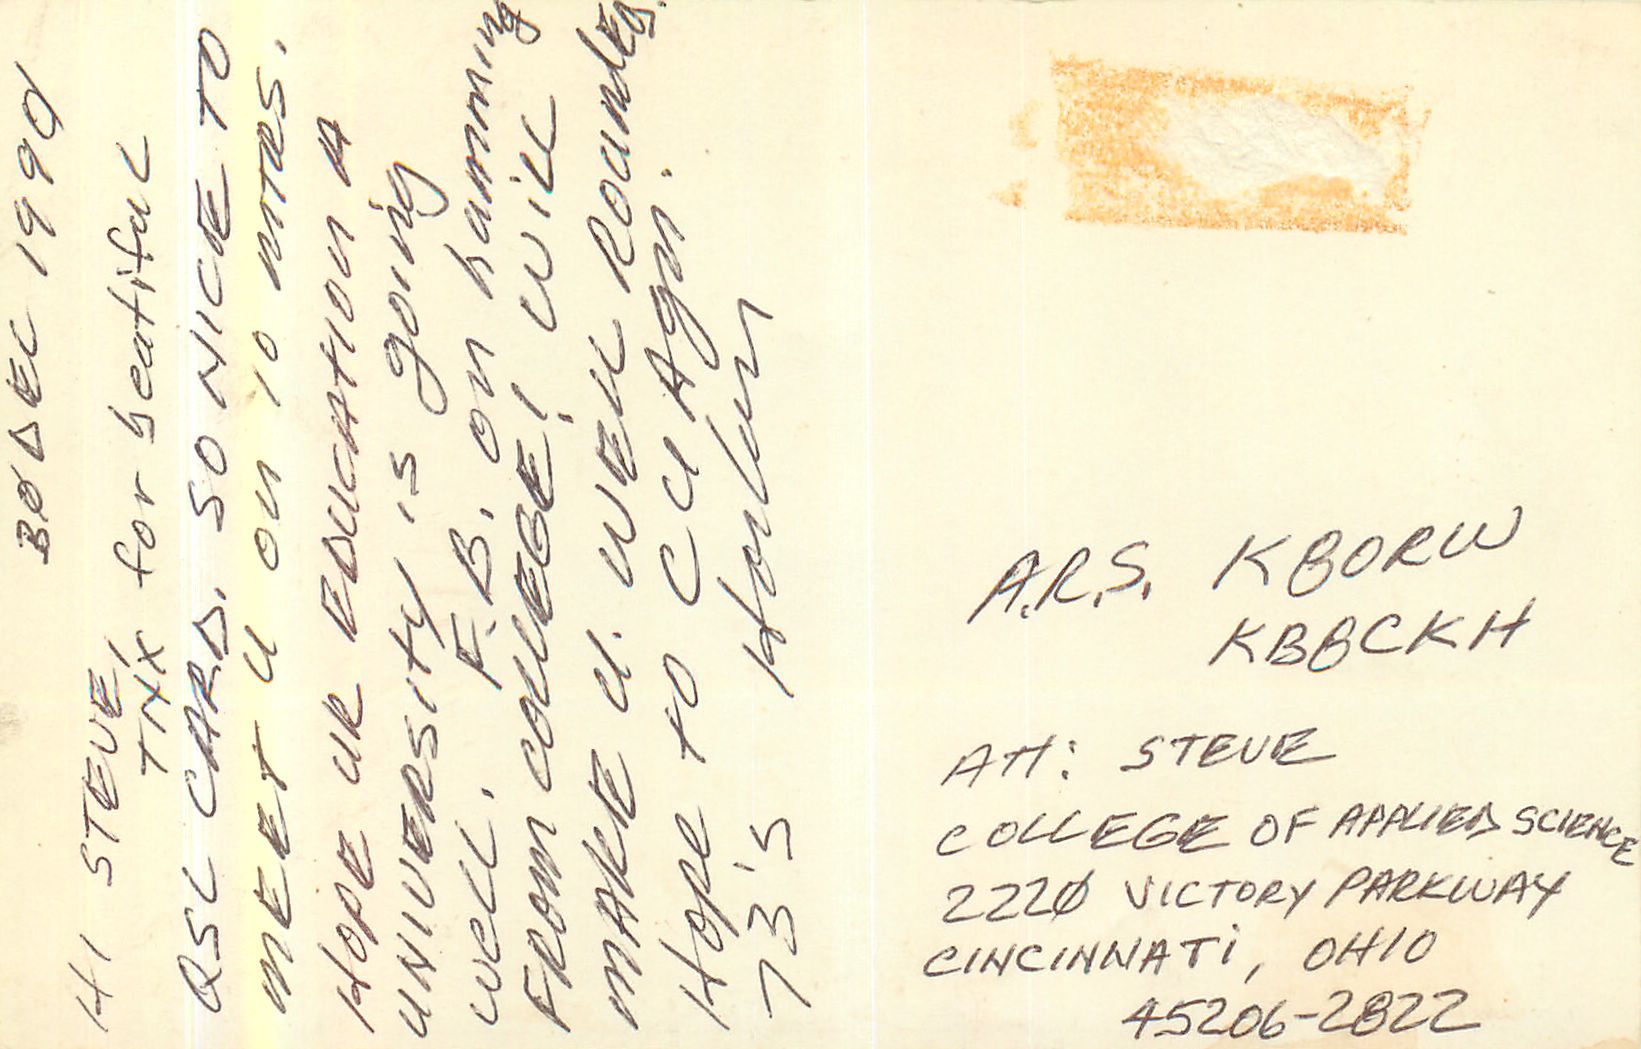 3Ø DEC 199Ø
HI STEVE,
TNX for beatiful
QSL CARD. SO NICE TO
MEET U ON 10 MTRS.
HOPE UR EDUCATION A
UNIVERSITY is going
well. F.B. on hamming
FROM COLLEGE! Will
MAKE U. WELL ROUNDED.
Hope to CU AGN.
73's Harlan
A.R.S. K8ORW
KB8CKH
Att: STEVE
COLLEGE OF APPLIED SCIENCE
222Ø VICTORY PARKWAY
CINCINNATI, OHIO
45206-2822